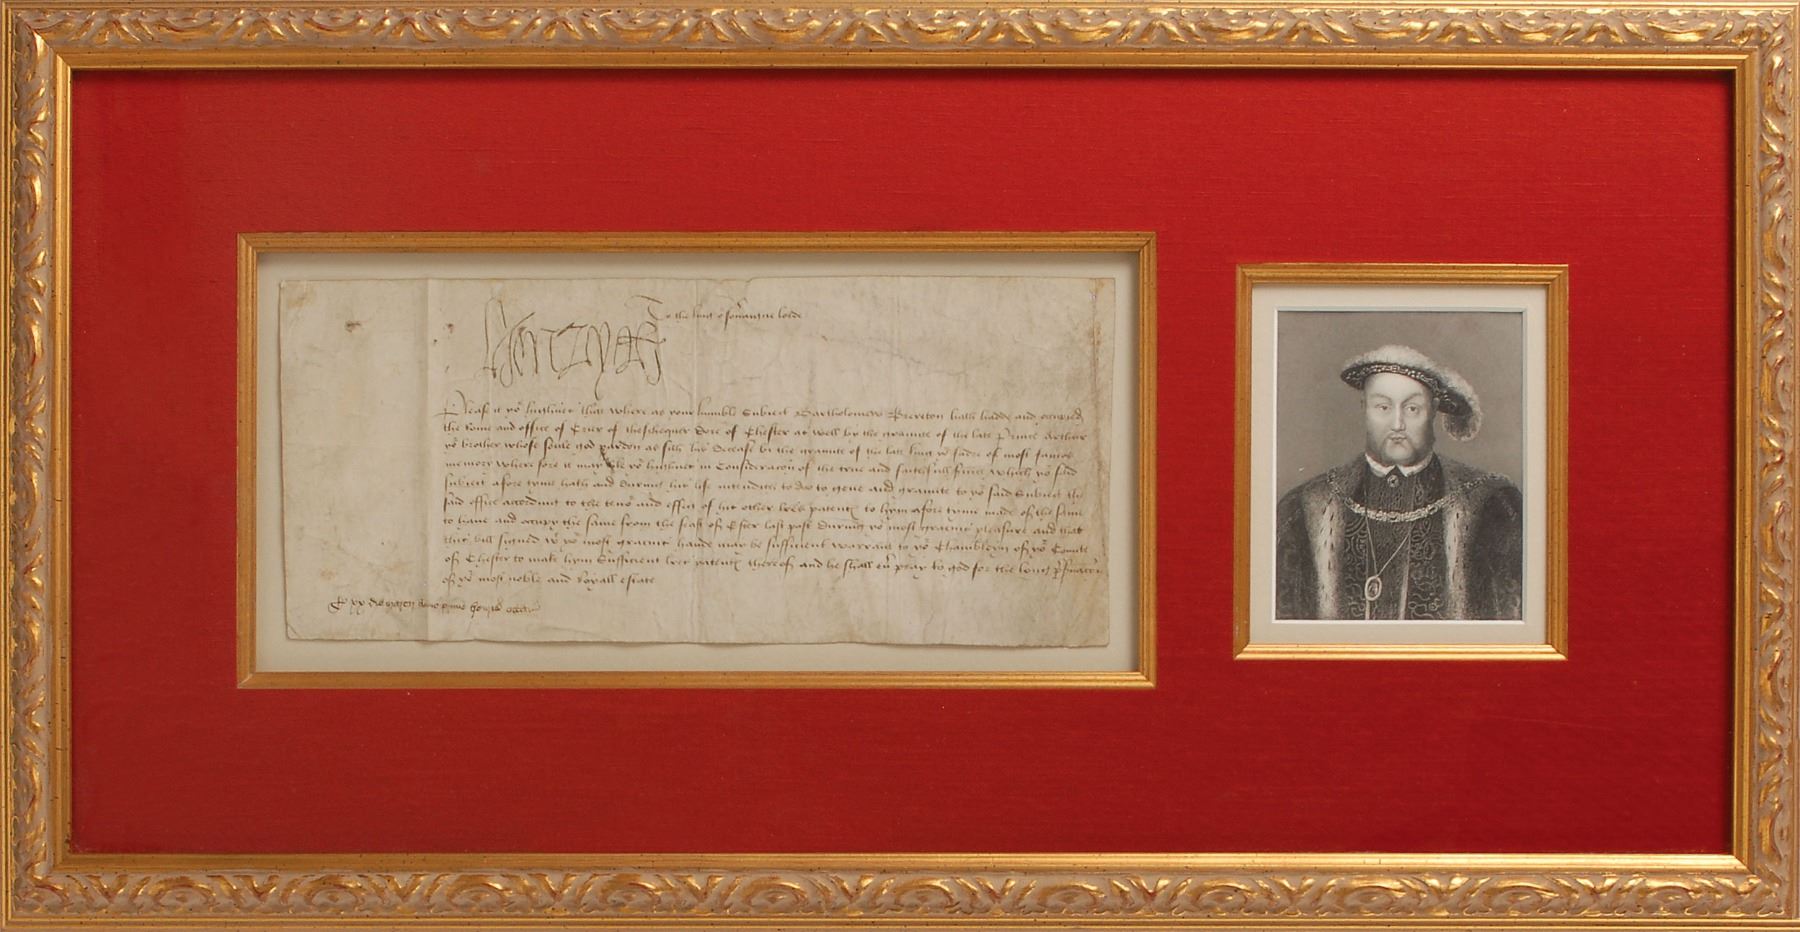 To the king oʳ souaigne lorde
Henry R
Please it yoʳ highnes that where as your humble Subiect Bartholomew Brereton hath hadde and occupied
the Rome and office of Crier of theschequer Dore of Chester as well by the graunte of the late Prince Arthur
yoʳ brother whose soule god pardon as sith his decease by the graunte of the late king yoʳ fadre of most famous
memory where fore it may like yoʳ highnes in Consideracon of the true and faithfull which yoʳ said
subiect afore tyme hath and during his life intendith to do to geue and graunte to yoʳ said Subiect the
said office according to the tenoʳ and effect of his other lres patent to hym afore tyme made of the same
to haue and occupy the same from the feast of Ester last past during yoʳ most gracious pleasure and that
this bill signed wᵗ yoʳ most gracious hande may be sufficient warrant to yoʳ Chamberleyn of yoʳ Countie
of Chester to make hym Sufficient lres patent thereof and he shall euʳ pray to god for the long
of yoʳ most noble and Royall estate
xx die anno primo